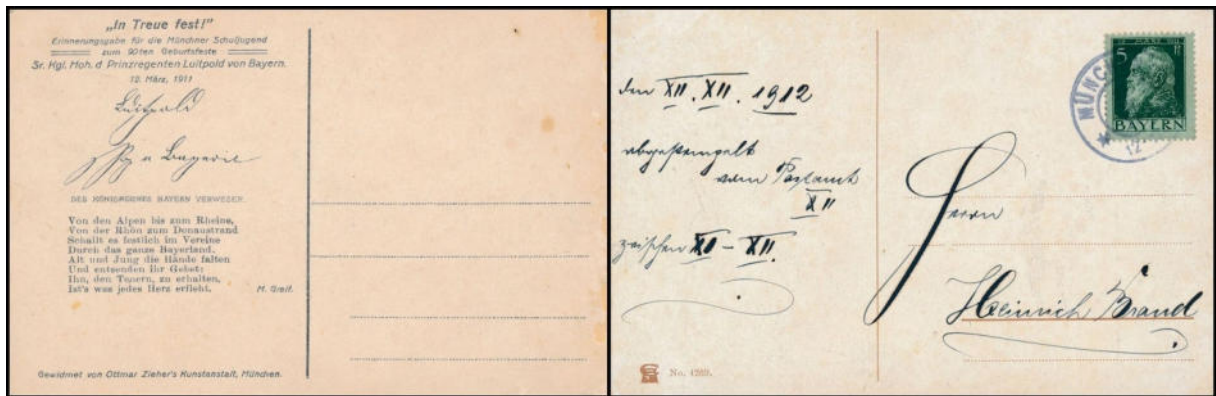 „In Treue fest!"
Erinnerungsgabe für die Münchner Schuljugend
zum 90ten Geburtsfeste
Sr. Kgl. Hoh. d. Prinzregenten Luitpold von Bayern.
12. März, 1911
Luitpold
DES KÖNIGREICHES BAYERN VERWESER.
Von den Alpen bis zum Rheine,
Von der Rhön zum Donaustrand
Schallt es festlich im Vereine
Durch das ganze Bayerland.
Alt und Jung die Hände falten
Und entsenden ihr Gebet:
Ihn, den Teuern, zu erhalten,
Ist's was jedes Herz erfleht.
M. Greif.
Gewidmet von Ottmar Zieher's Kunstanstalt, München.
den XII. XII. 1912
abgestempelt
vom Postamt
XII
zwischen XI – XII.
No. 4269.
5
BAYERN
MÜNC
12
Herrn
Heinrich Brand